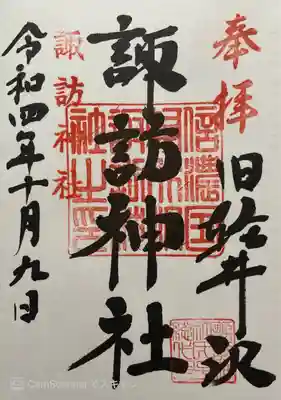 奉拝
旧軽井沢
諏訪神社
諏訪神社
令和四年十月九日
CamScanner でスキャン